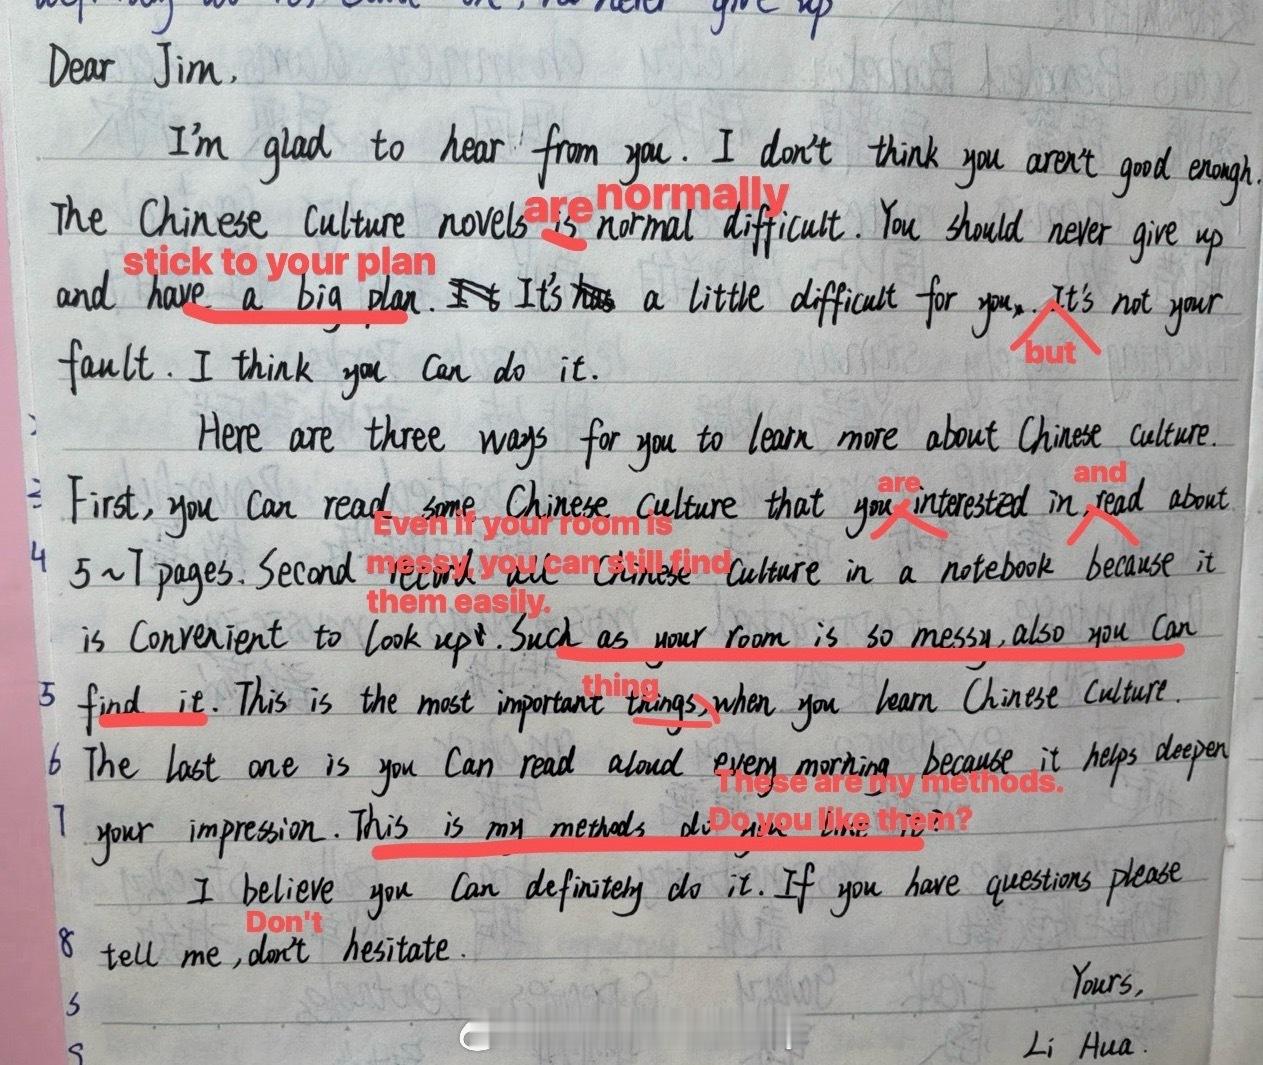 never give up
Dear Jim,
I'm glad to hear from you. I don't think you aren't good enough.
are normally
The Chinese Culture novels is normal difficult. You should never give up
stick to your plan
and have a big plan. It's a little difficult for you. It's not your
but
fault. I think you can do it.
Here are three ways for you to learn more about Chinese culture.
are and
First, you can read some Chinese culture that you interested in, read about
Even if your room is
messy, you can still find
5~7 pages. Second record all Chinese Culture in a notebook because it
4
them easily.
is convenient to look up. Such as your room is so messy, also you can
thing
5
find it. This is the most important things, when you learn Chinese Culture.
6
The last one is you can read aloud every morning because it helps deepen
These are my methods.
Do you like them?
7
your impression. This is my methods do you like it?
I believe you can definitely do it. If you have questions please
Don't
8
tell me, don't hesitate.
Yours,
Li Hua.